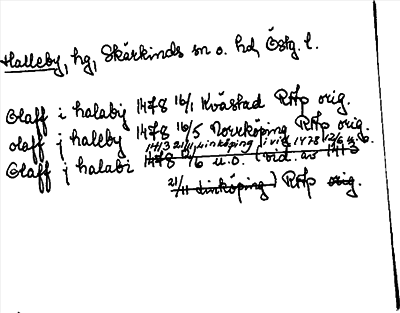 Halleby, hg, Skärkinds sn o. hd, Östg. l.
Olaff i halabij 1478 16/1 Kvästad RAp orig.
olaff j haleby 1478 16/5 Norrköping RAp orig.
1413 21/11 Linköping i vid. 1478 12/6 u.o.
Olaff j halabi 1478 12/6 u.o. (vid. av 1413
21/11 Linköping) RAp orig.